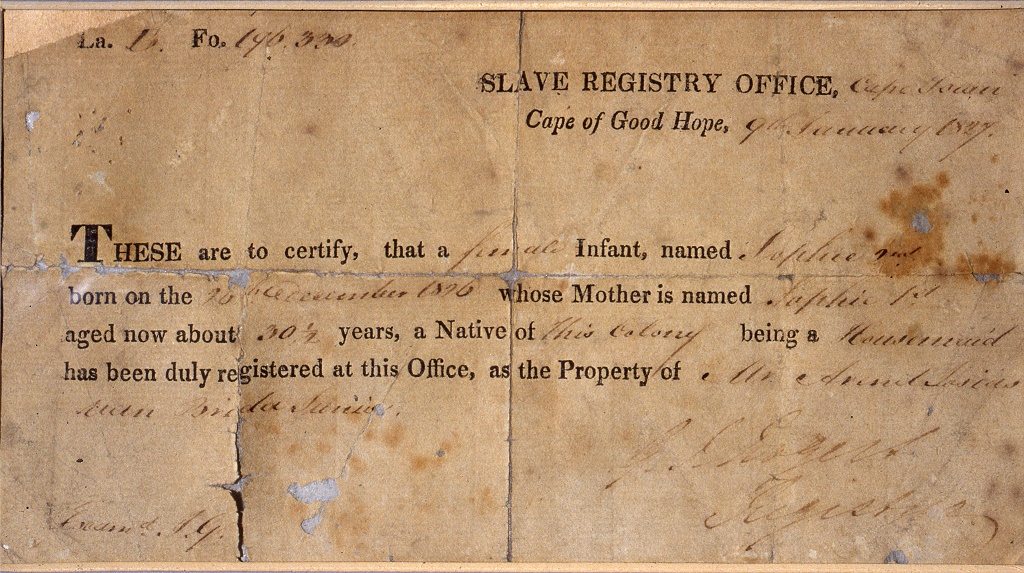 La. Fo. 196. 330.
SLAVE REGISTRY OFFICE, Cape Town
Cape of Good Hope, 9th January 1827.
THESE are to certify, that a female Infant, named Sophie 2nd
born on the 26th December 1826 whose Mother is named Sophie 1st
aged now about 30½ years, a Native of this Colony being a Housemaid
has been duly registered at this Office, as the Property of Mr
van Junior.
Rogers
Registrar
Examd.